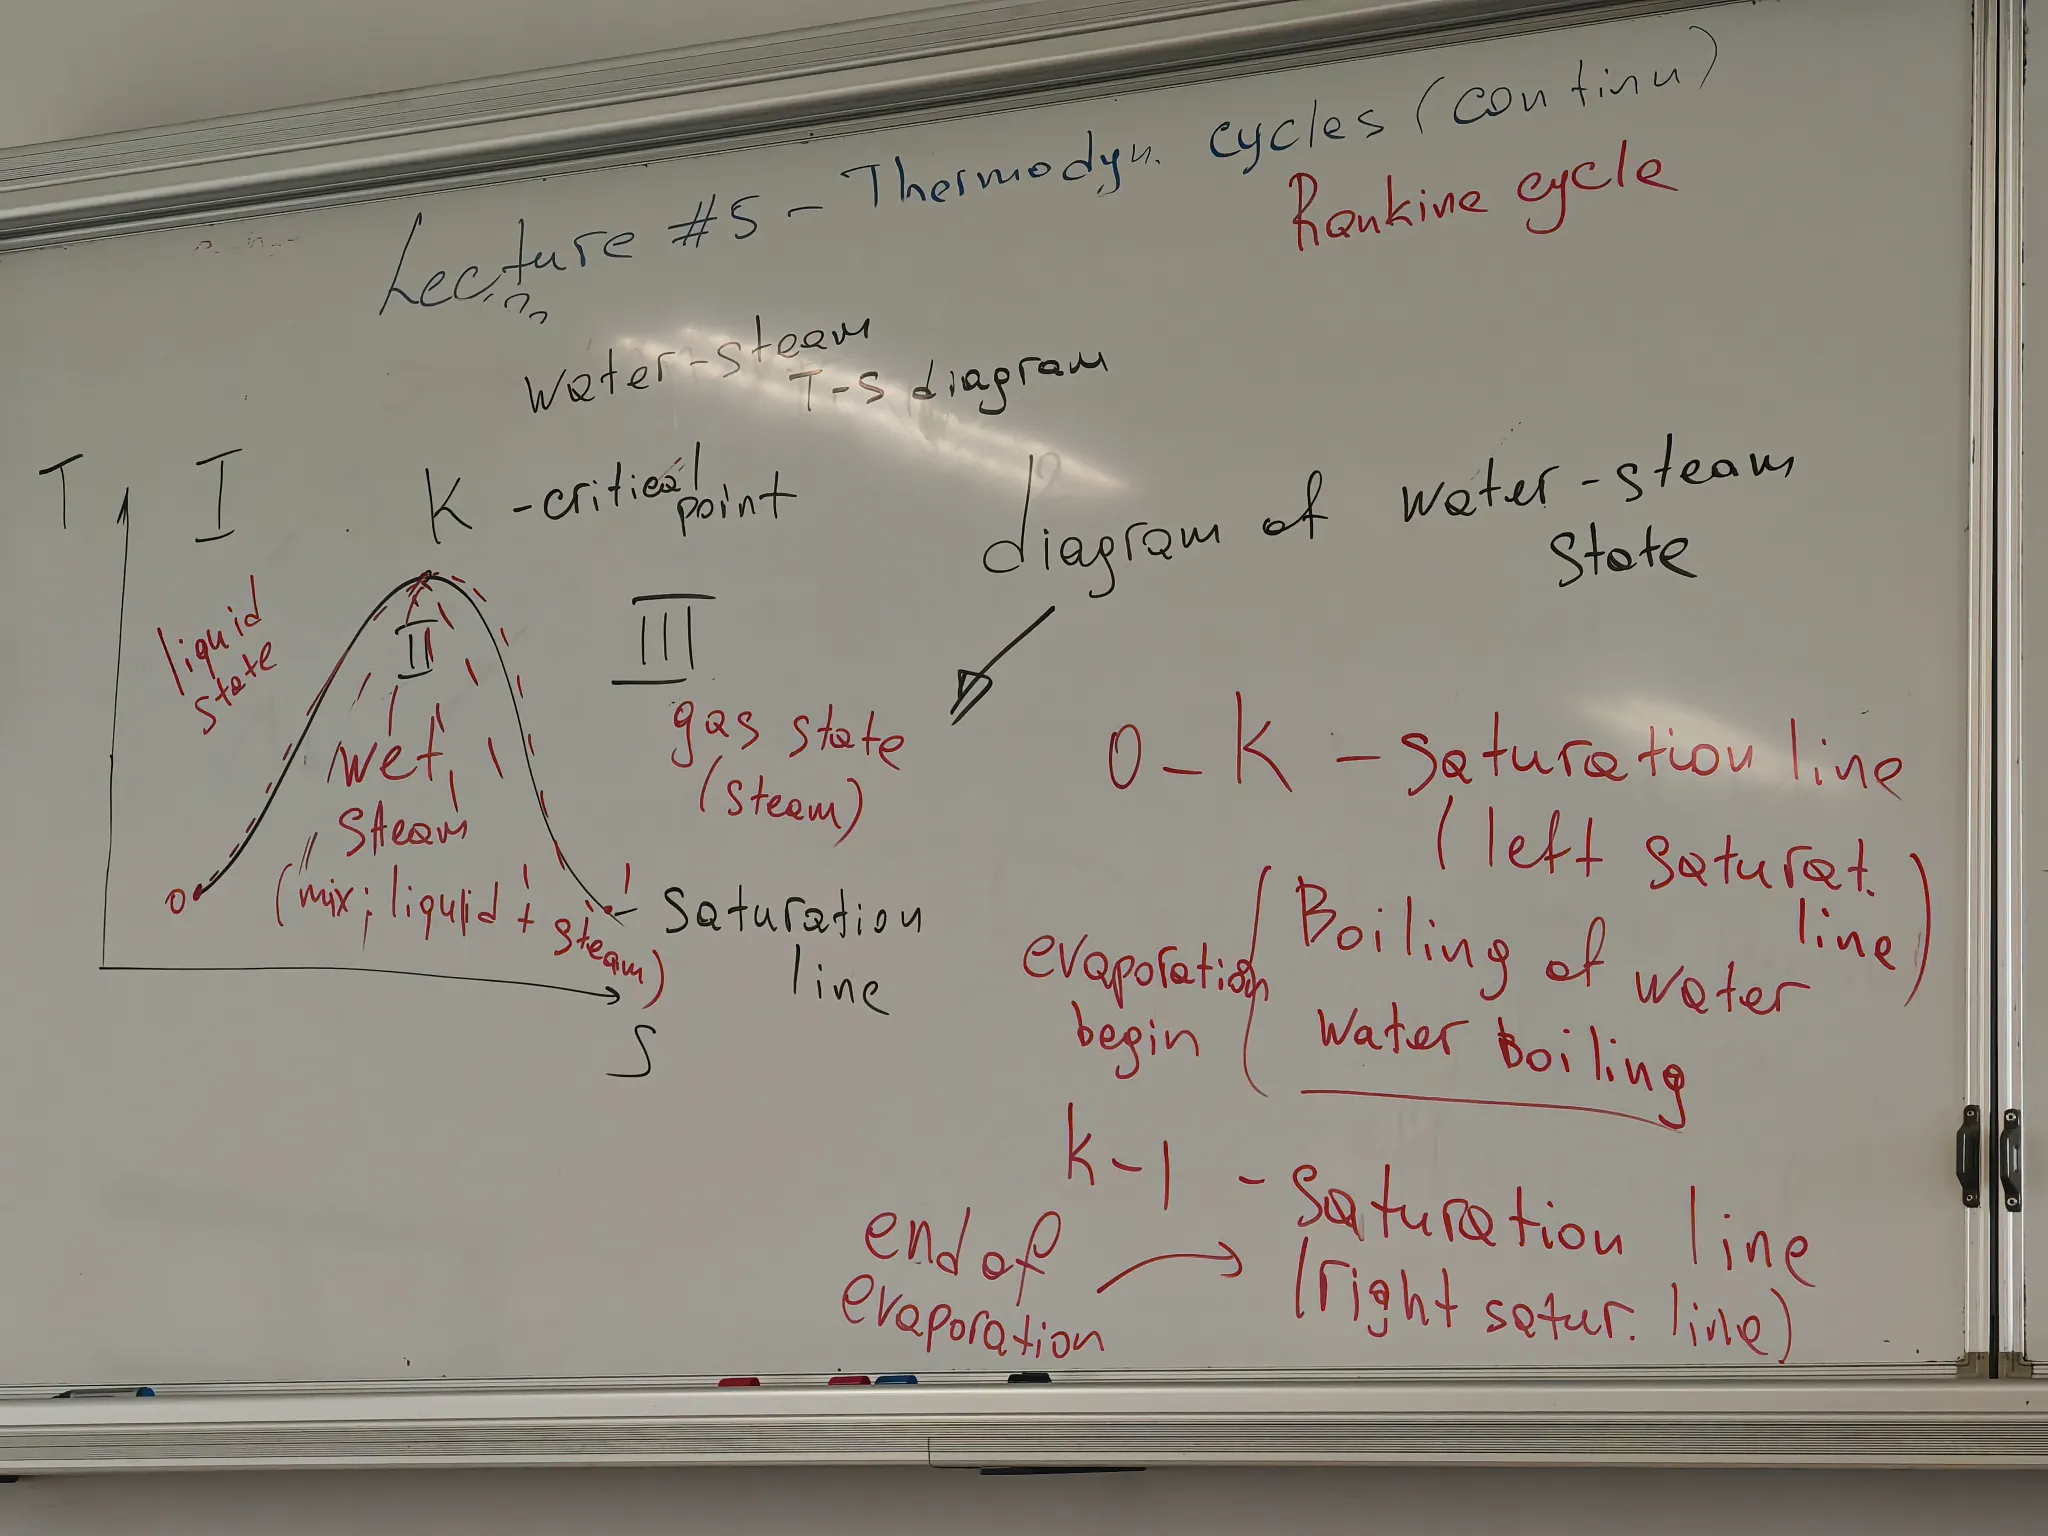 Lecture #5 - Thermodyn. cycles (continu)
Rankine cycle
water-steam
T-S diagram
T
I
K - critical point
diagram of water-steam
state
liquid
state
II
III
gas state
(steam)
wet
steam
(mix; liquid + steam)
O
1
- saturation
line
S
O-K - saturation line
(left saturat.
line)
evaporation
begin
Boiling of water
water boiling
K-1 - saturation line
(right satur. line)
end of
evaporation